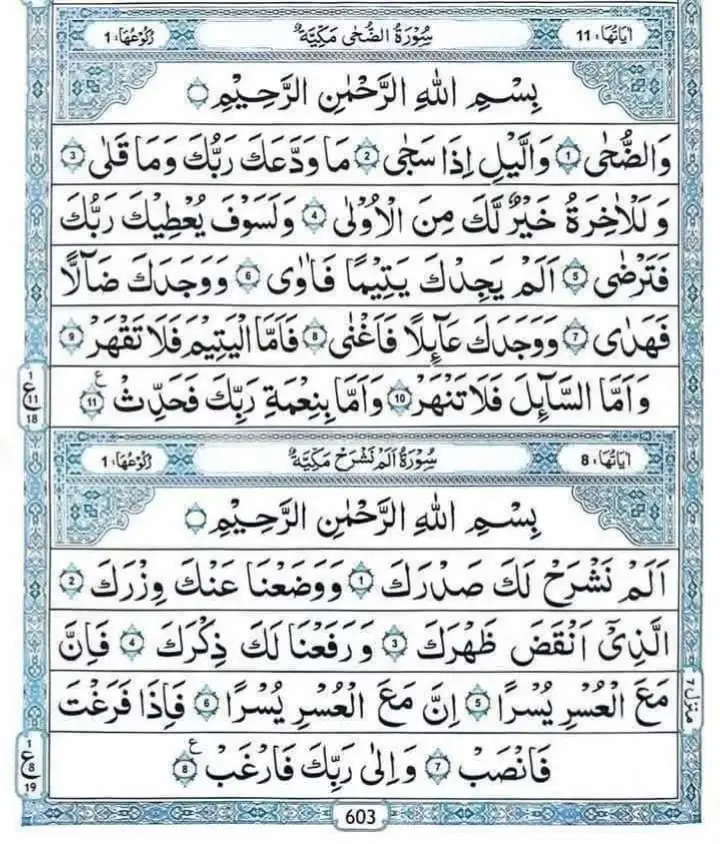 اٰيَاتُهَا: 11 سُوْرَةُ الضُّحٰى مَكِّيَّةٌ رُكُوْعُهَا: 1
بِسْمِ اللّٰهِ الرَّحْمٰنِ الرَّحِيْمِ
وَالضُّحٰى 1 وَالَّيْلِ اِذَا سَجٰى 2 مَا وَدَّعَكَ رَبُّكَ وَمَا قَلٰى 3
وَلَلْاٰخِرَةُ خَيْرٌ لَّكَ مِنَ الْاُوْلٰى 4 وَلَسَوْفَ يُعْطِيْكَ رَبُّكَ
فَتَرْضٰى 5 اَلَمْ يَجِدْكَ يَتِيْمًا فَاٰوٰى 6 وَوَجَدَكَ ضَآلًّا
فَهَدٰى 7 وَوَجَدَكَ عَآىِٕلًا فَاَغْنٰى 8 فَاَمَّا الْيَتِيْمَ فَلَا تَقْهَرْ 9
وَاَمَّا السَّآىِٕلَ فَلَا تَنْهَرْ 10 وَاَمَّا بِنِعْمَةِ رَبِّكَ فَحَدِّثْ 11 ع
1
ع
11
18
اٰيَاتُهَا: 8 سُوْرَةُ اَلَمْ نَشْرَحْ مَكِّيَّةٌ رُكُوْعُهَا: 1
بِسْمِ اللّٰهِ الرَّحْمٰنِ الرَّحِيْمِ
اَلَمْ نَشْرَحْ لَكَ صَدْرَكَ 1 وَوَضَعْنَا عَنْكَ وِزْرَكَ 2
الَّذِيْٓ اَنْقَضَ ظَهْرَكَ 3 وَرَفَعْنَا لَكَ ذِكْرَكَ 4 فَاِنَّ
مَعَ الْعُسْرِ يُسْرًا 5 اِنَّ مَعَ الْعُسْرِ يُسْرًا 6 فَاِذَا فَرَغْتَ
منزل ٧
فَانْصَبْ 7 وَاِلٰى رَبِّكَ فَارْغَبْ 8 ع
1
ع
8
19
603